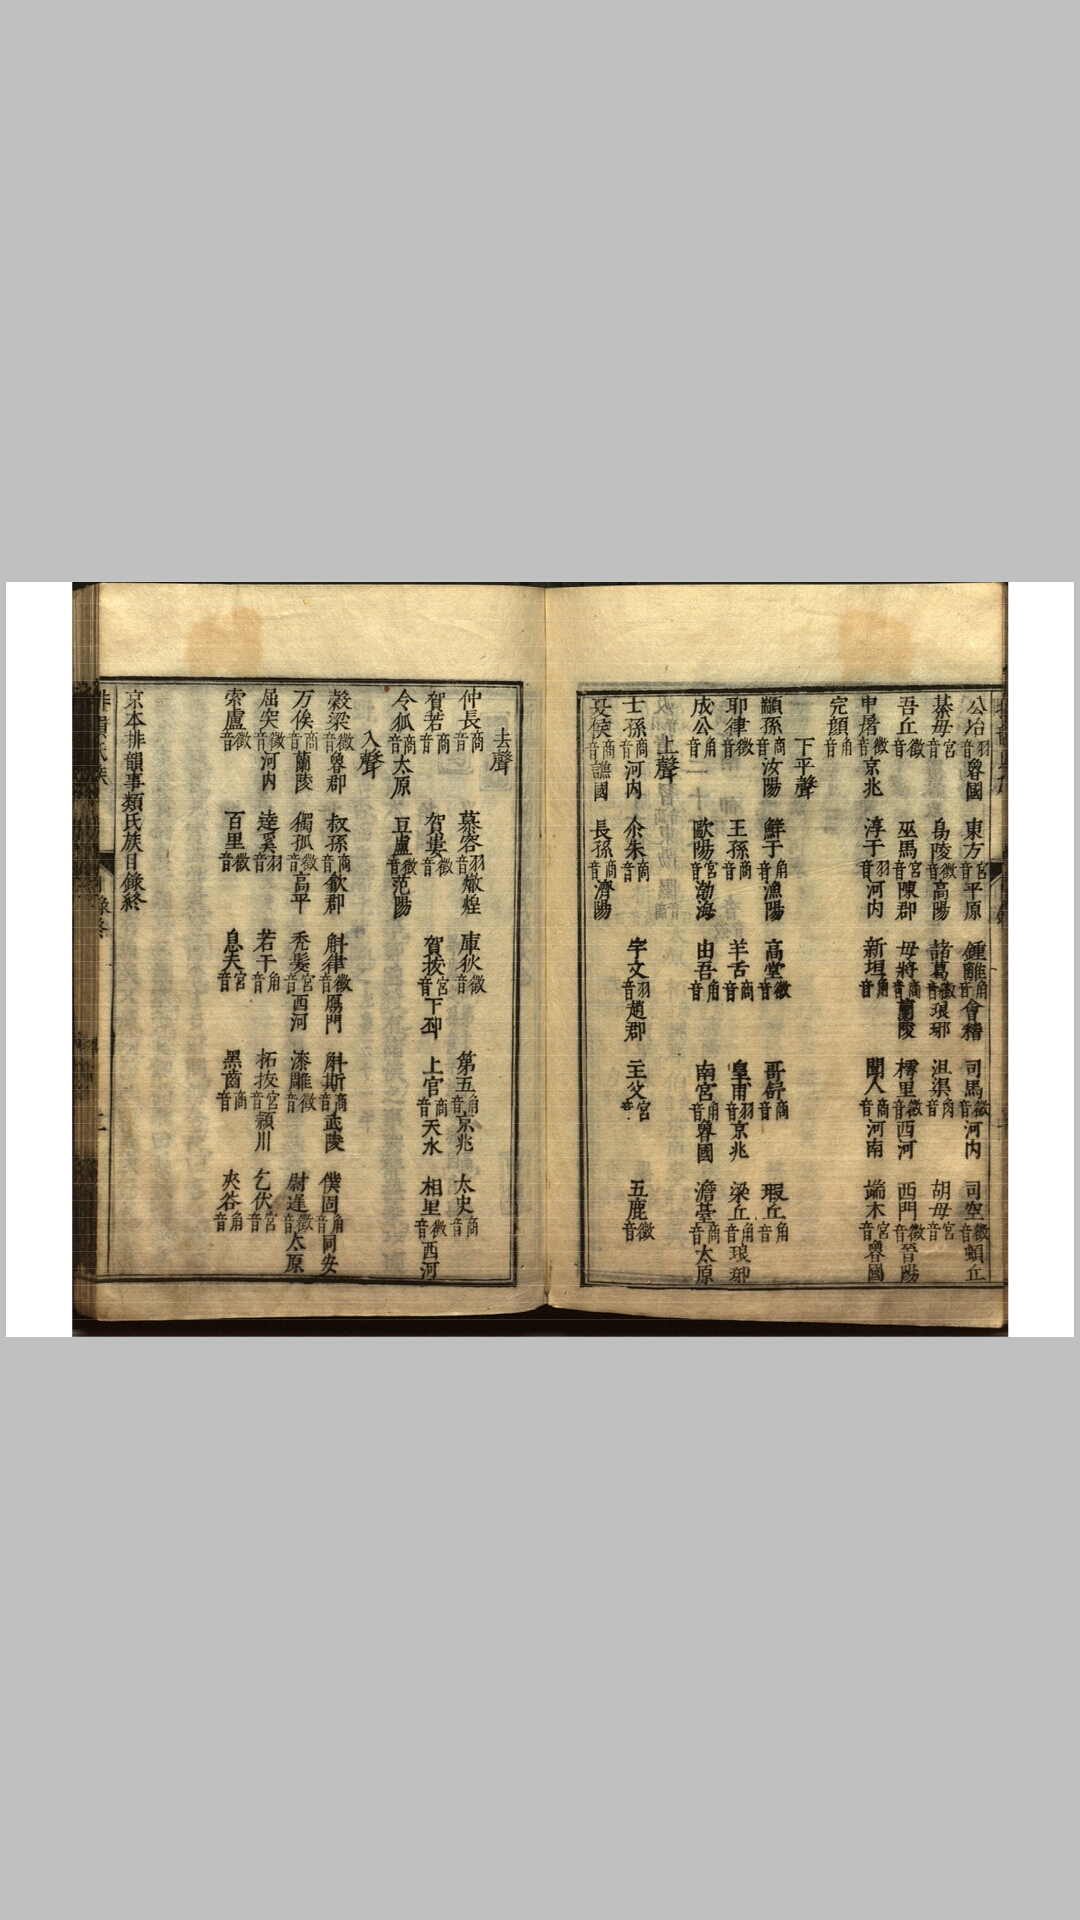 公冶羽音魯國 東方宮音平原 鍾離角音會稽 司馬徵音河内 司空徵音頓丘
綦毋宮音 烏陵徵音高陽 諸葛徵音琅琊 沮渠角音 胡毋宮音
吾丘徵音 巫馬宮音陳郡 毋將商音蘭陵 樗里徵音西河 西門徵音晉陽
申屠徵音京兆 淳于羽音河内 新垣角音 聞人商音河南 端木宮音魯國
完顔角音
下平聲
顓孫商音汝陽 鮮于角音漁陽 高堂徵音 哥舒商音 瑕丘角音
耶律徵音 王孫商音 羊舌商音 皇甫羽音京兆 梁丘角音琅琊
成公角音 歐陽宮音渤海 由吾角音 南宮角音魯國 澹臺商音太原
上聲
士孫商音河内 尒朱商音 宇文羽音趙郡 主父宮音 五鹿徵音
夏侯商音譙國 長孫商音濟陽
去聲
仲長商音 慕容羽音燉煌 庫狄徵音 第五角音京兆 太史商音
賀若商音 賀婁徵音 賀拔宮音下邳 上官商音天水 相里徵音西河
令狐商音太原 豆盧徵音范陽
入聲
穀梁徵音魯郡 叔孫商音歙郡 斛律徵音鴈門 斛斯商音武陵 僕固角音同安
万俟商音蘭陵 獨孤徵音高平 禿髮宮音西河 漆雕徵音 尉遲徵音太原
屈突徵音河内 達奚羽音 若干角音 拓拔宮音潁川 乞伏宮音
索盧徵音 百里徵音 息夫宮音 黑齒商音 夾谷角音
京本排韻事類氏族目錄終